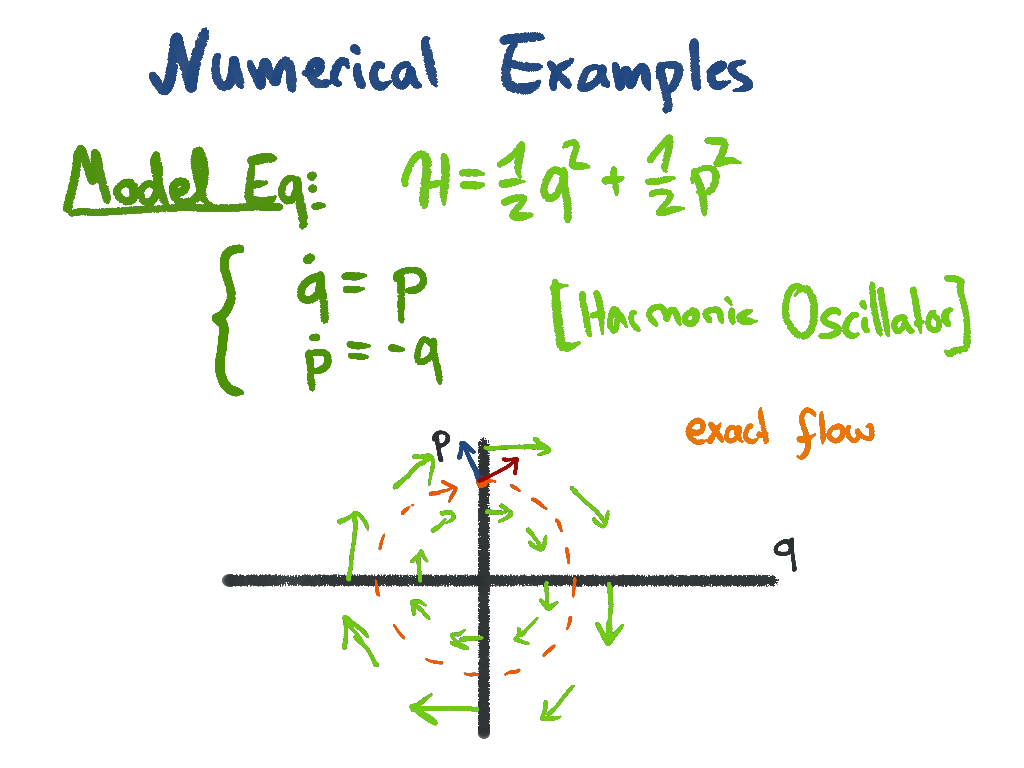 Numerical Examples
Model Eq: H = 1/2 q² + 1/2 p²
{ q̇ = p
ṗ = -q
[Harmonic Oscillator]
exact flow
p
q